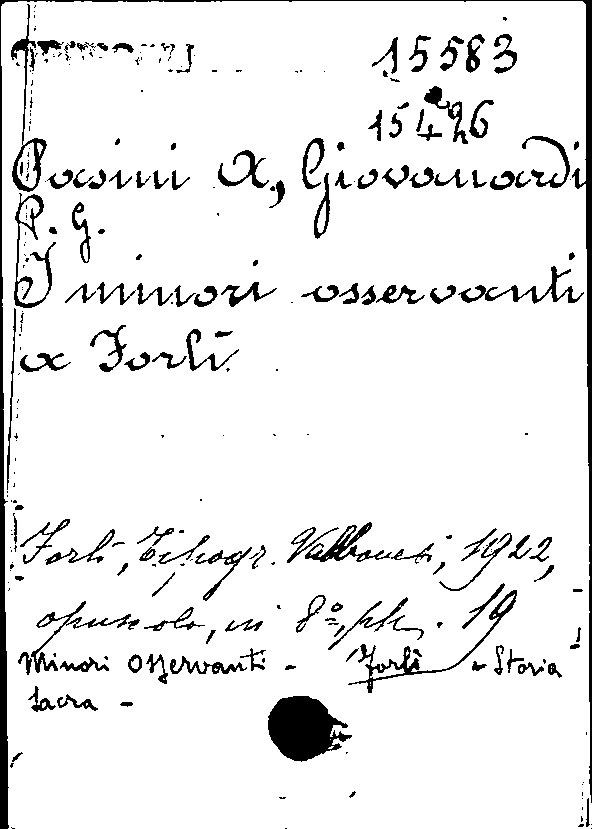 15583
15426
Pasini A, Giovanardi
P. G.
I minori osservanti
a Forlì
Forlì, Tipogr. Valbonesi, 1922,
opuscolo, in 8º, pp. 19
Minori Osservanti - Forlì - Storia
sacra -